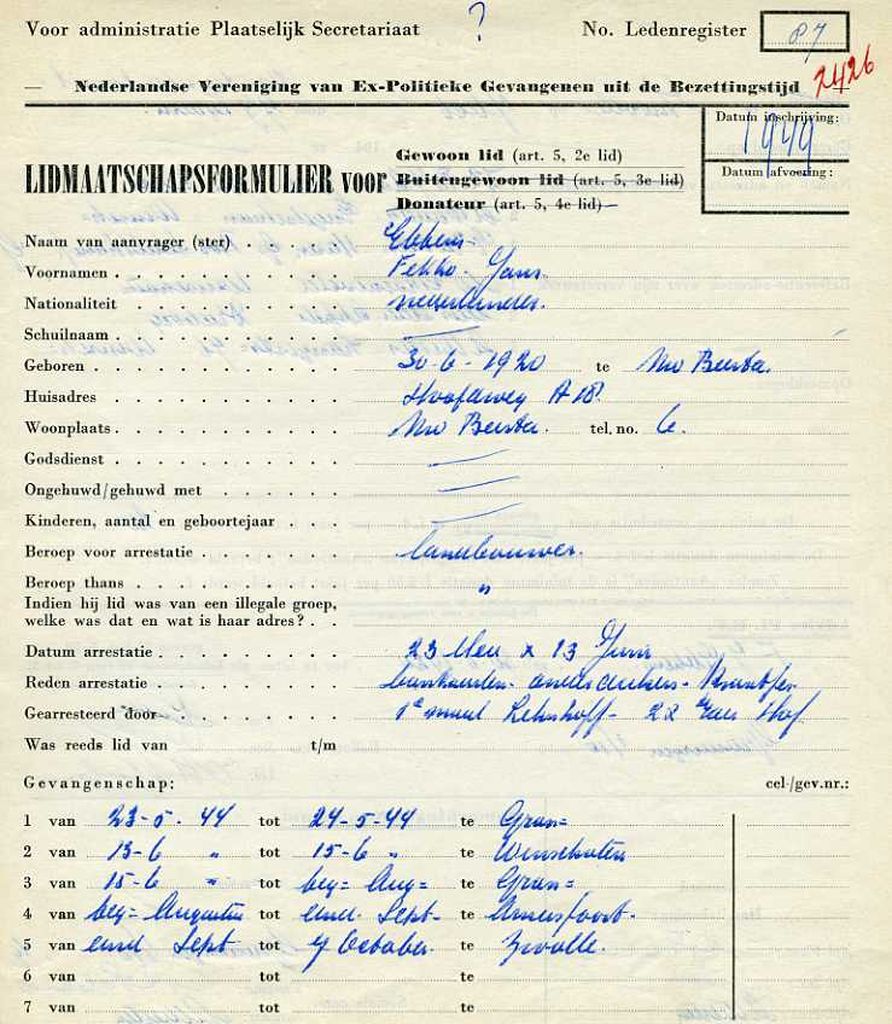 Voor administratie Plaatselijk Secretariaat ? No. Ledenregister 87
2426
— Nederlandse Vereniging van Ex-Politieke Gevangenen uit de Bezettingstijd
Datum inschrijving: 1949
Datum afvoering:
LIDMAATSCHAPSFORMULIER voor
Gewoon lid (art. 5, 2e lid)
Buitengewoon lid (art. 5, 3e lid)
Donateur (art. 5, 4e lid)
Naam van aanvrager (ster) . . . . . Ebbens
Voornamen . . . . . . . . . . . Fekko Jans
Nationaliteit . . . . . . . . . . nederlander.
Schuilnaam . . . . . . . . . . . —
Geboren . . . . . . . . . . . . 30-6-1920 te Nw Beerta.
Huisadres . . . . . . . . . . . Hoofdweg A 18
Woonplaats . . . . . . . . . . . Nw Beerta. tel. no. 6.
Godsdienst . . . . . . . . . . . —
Ongehuwd/gehuwd met . . . . . . —
Kinderen, aantal en geboortejaar . . . —
Beroep voor arrestatie . . . . . . . landbouwer.
Beroep thans . . . . . . . . . . "
Indien hij lid was van een illegale groep,
welke was dat en wat is haar adres? . .
Datum arrestatie . . . . . . . . . 23 Mei 13 Juni
Reden arrestatie . . . . . . . . . onderduikers -
Gearresteerd door . . . . . . . . 1e maal Lehnhoff - 2e
Was reeds lid van t/m
Gevangenschap: cel-/gev.nr.:
1 van 23-5-44 tot 24-5-44 te Gron=
2 van 13-6 " tot 15-6 " te Winschoten
3 van 15-6 " tot beg= Aug= te Gron=
4 van beg= Augustus tot eind Sept- te Amersfoort-
5 van eind Sept tot 7 October te Zwolle.
6 van tot te
7 van tot te